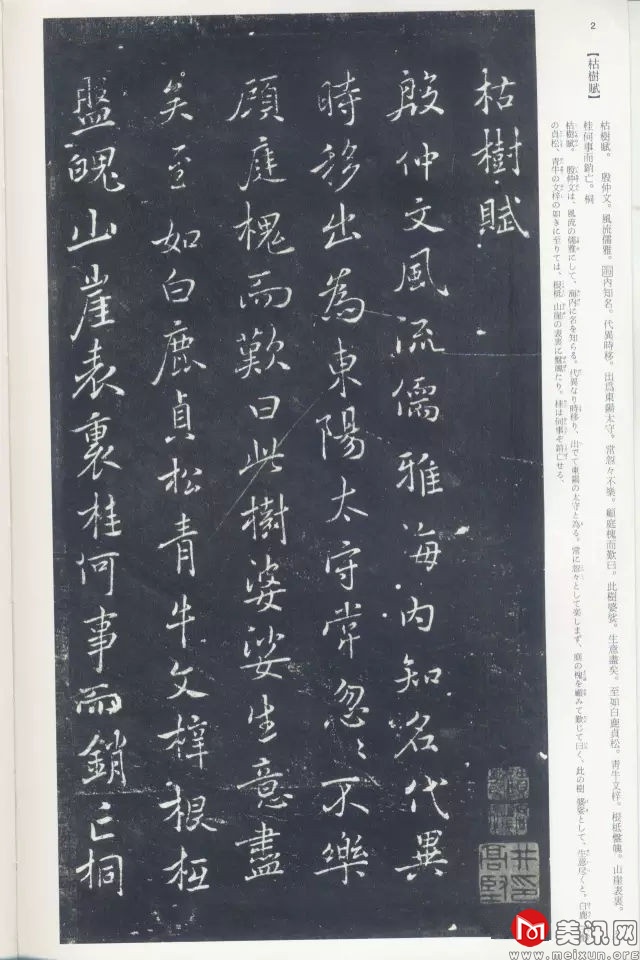 2
【枯樹賦】
枯樹賦。 殷仲文。風流儒雅。海内知名。代異時移。出爲東陽太守。常忽々不樂。顧庭槐而歎曰。此樹婆娑。生意盡矣。至如白鹿貞松。青牛文梓。根柢盤魄。山崖表裏。
桂何事而銷亡。桐
枯樹賦。 殷仲文は、風流の儒雅にして、海内に名を知らる。代異なり時移り、出でて東陽の太守と為る。常に忽々として楽しまず、庭の槐を顧みて歎じて曰く、此の樹 婆娑として、生意尽くと。白鹿
の貞松、青牛の文梓の如きに至りては、根柢、山崖の表裏に盤魄たり。桂は何事ぞ銷亡せる、
枯樹賦
殷仲文風流儒雅海内知名代異
時移出為東陽太守常忽〻不樂
顧庭槐而歎曰此樹婆娑生意盡
矣至如白鹿貞松青牛文梓根柢
盤魄山崖表裏桂何事而銷亡桐
美讯网
www.meixun.org